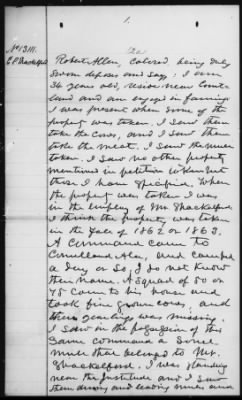 1.
No 1311.
Robert Allen, colored, being duly
sworn deposes and says: I am
34 years old, reside near Court-
land and am engaged in farming
I was present when some of the
property was taken. I saw them
take the cows, and I saw them
take the meat. I saw the mules
taken. I saw no other property
mentioned in petition taken but
those I have specified. When
the property was taken I was
in the employ of Mr Shackelford.
I think the property was taken
in the year of 1862 or 1863.
A Command came to
Courtland Ala, and camped
a day or so, I do not know
their name. A squad of 50 or
75 came to his house and
took five grown cows, and
three yearlings was missing.
I saw in the possession of this
same command a Sorrel
mule that belonged to Mr.
Shackelford. I was standing
near the Institute and I saw
them driving and leading mules and